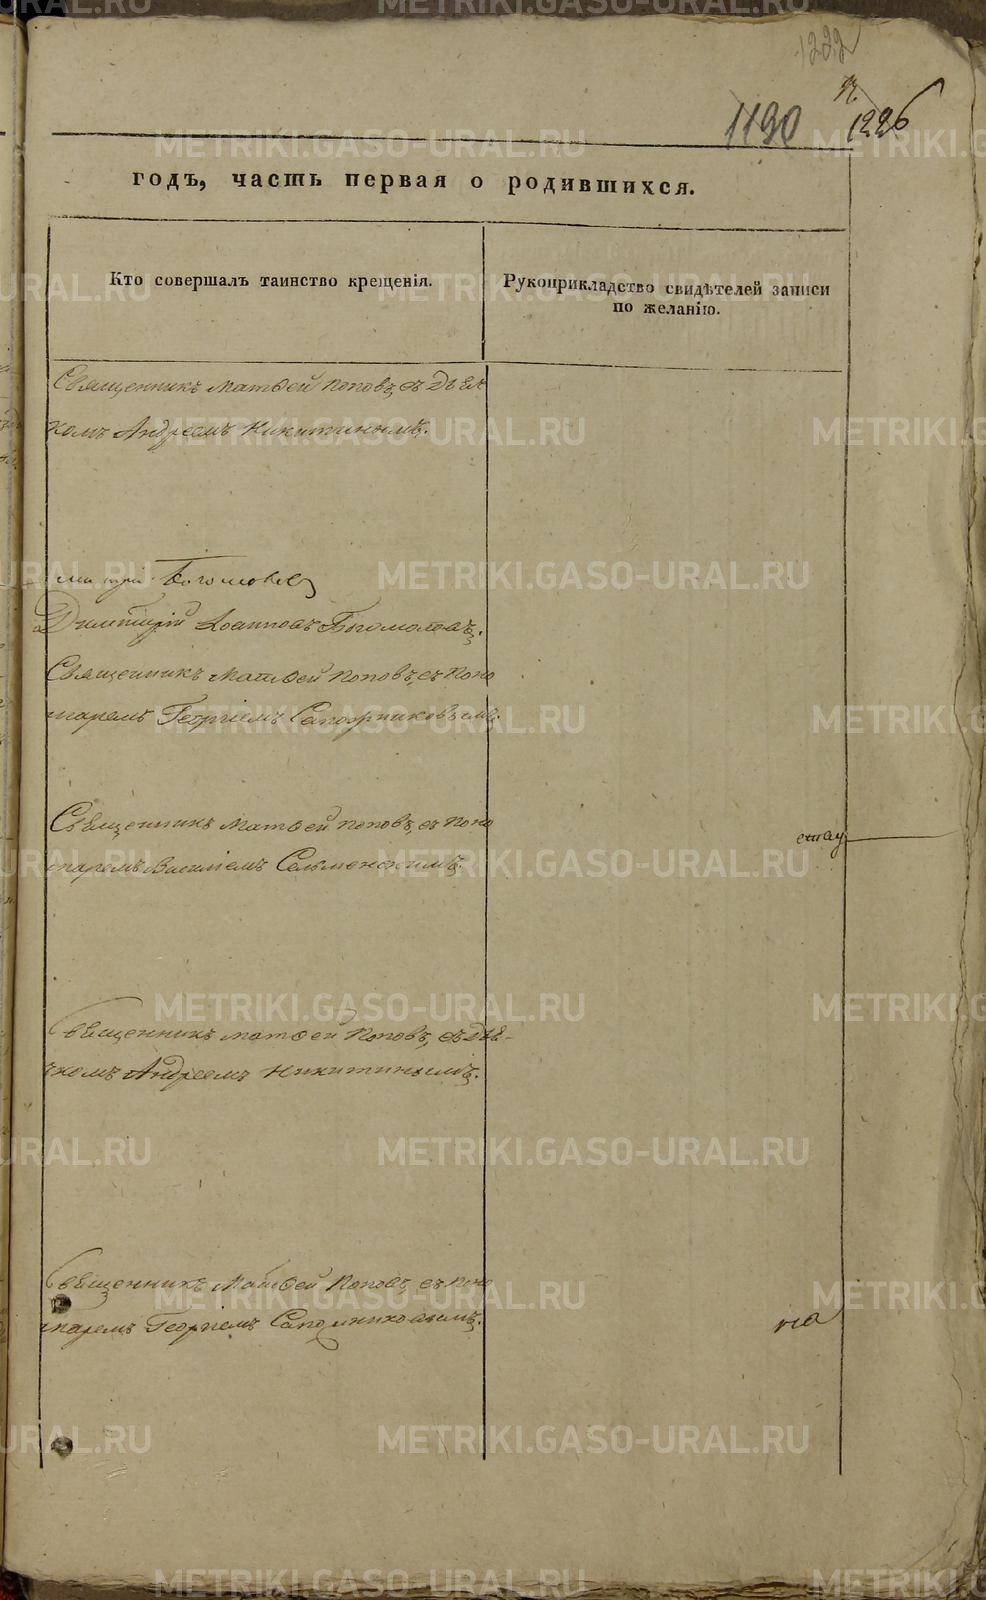 1222
1190
1226
годъ, часть первая о родившихся.
Кто совершалъ таинство крещенія.
Рукоприкладство свидѣтелей записи
по желанію.
Священникъ Матѳей Поповъ, съ Дьяч
комъ Андреемъ Никитинымъ.
Богомолов
Димитрій Іоанновъ Богомоловъ.
Священникъ Матѳей Поповъ, съ Поно
маремъ Георгіемъ Сапожниковымъ.
Священникъ Матѳей Поповъ, съ Поно
маремъ Василіемъ
Священникъ Матѳей Поповъ, съ Дья-
чкомъ Андреемъ Никитинымъ.
Священникъ Матѳей Поповъ, съ Поно
маремъ Георгіемъ Сапожниковымъ.
METRIKI.GASO-URAL.RU